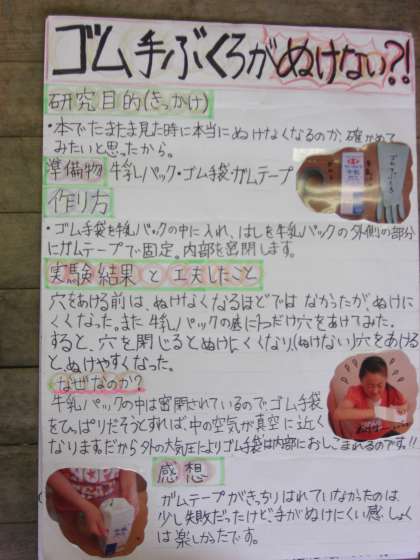 ゴム手ぶくろがぬけない?!
研究目的(きっかけ)
・本でたまたま見た時に本当にぬけなくなるのか、確かめて
みたいと思ったから。
準備物 牛乳パック・ゴム手袋・ガムテープ
作り方
・ゴム手袋を牛乳パックの中に入れ、はしを牛乳パックの外側の部分
にガムテープで固定。内部を密閉します。
実験結果と工夫したこと
穴をあける前は、ぬけなくなるほどではなかったが、ぬけに
くくなった。また牛乳パックの底に1つだけ穴をあけてみた。
すると、穴を閉じるとぬけにくくなり、(ぬけない)穴をあける
と、ぬけやすくなった。
なぜなのか?
牛乳パックの中は密閉されているのでゴム手袋
をひっぱりだそうとすれば、中の空気が真空に近く
なります。だから外の大気圧によりゴム手袋は内部におしこまれるのです!!
感想
ガムテープがきっちりはれていなかったのは
少し失敗だったけど手がぬけにくい感しょく
は楽しかったです。